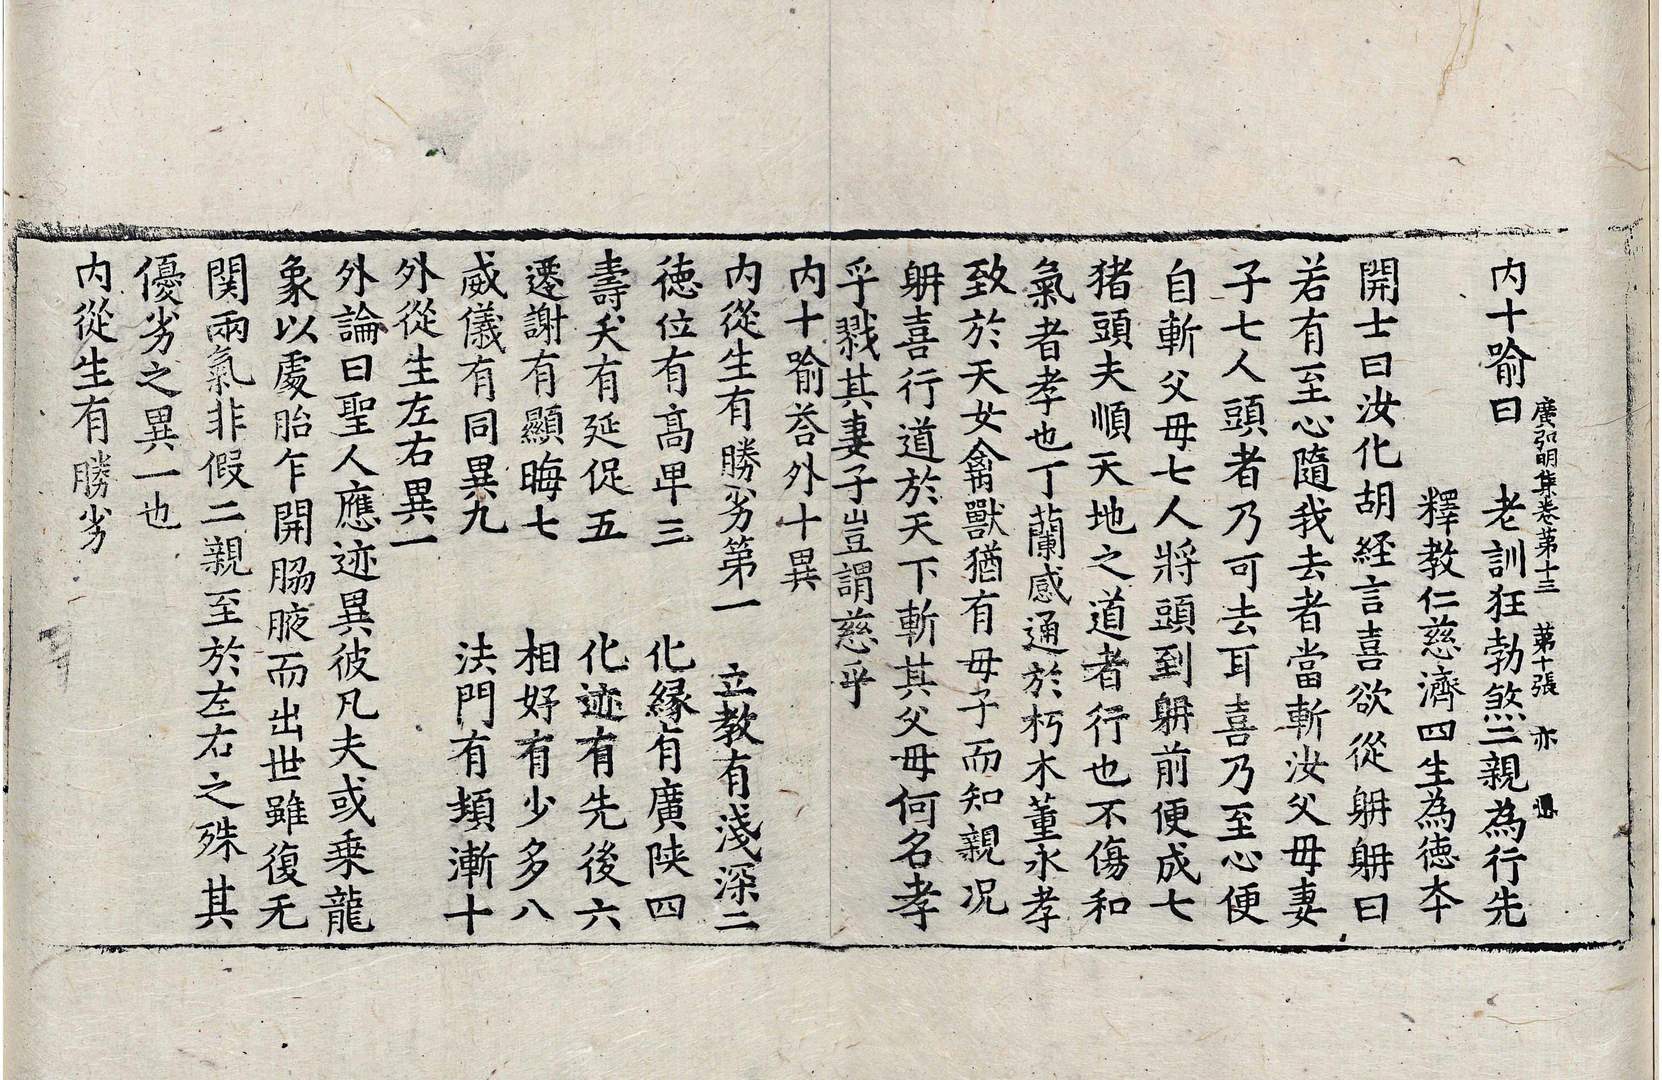 內十喻曰 老訓狂勃煞二親為行先
廣弘明集卷第十三 第十張 亦
釋教仁慈濟四生為德本
開士曰汝化胡経言喜欲從躭躭曰
若有至心隨我去者當斬汝父母妻
子七人頭者乃可去耳喜乃至心便
自斬父母七人將頭到躭前便成七
猪頭夫順天地之道者行也不傷和
氣者孝也丁蘭感通於朽木董永孝
致於天女禽獸猶有母子而知親况
躭喜行道於天下斬其父母何名孝
乎戮其妻子豈謂慈乎
內十喻荅外十異
內從生有勝劣第一 立教有淺深二
徳位有髙卑三 化縁有廣狹四
壽夭有延促五 化迹有先後六
遷謝有顯晦七 相好有少多八
威儀有同異九 法門有頓漸十
外從生左右異一
外論曰聖人應迹異彼凡夫或乗龍
象以處胎乍開脇腋而出世雖復无
関兩氣非假二親至於左右之殊其
優劣之異一也
內從生有勝劣